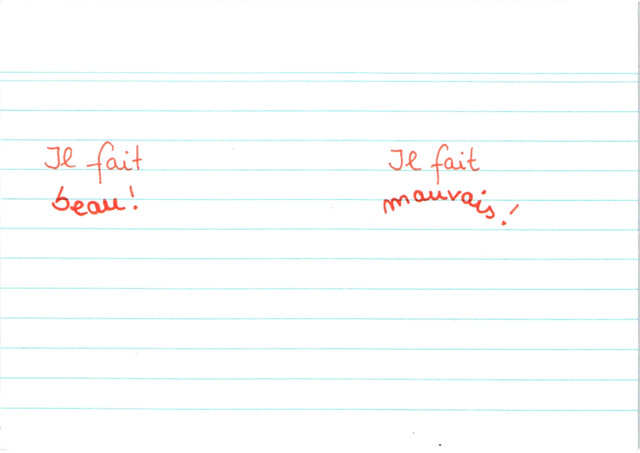 Il fait
beau!
Il fait
mauvais!